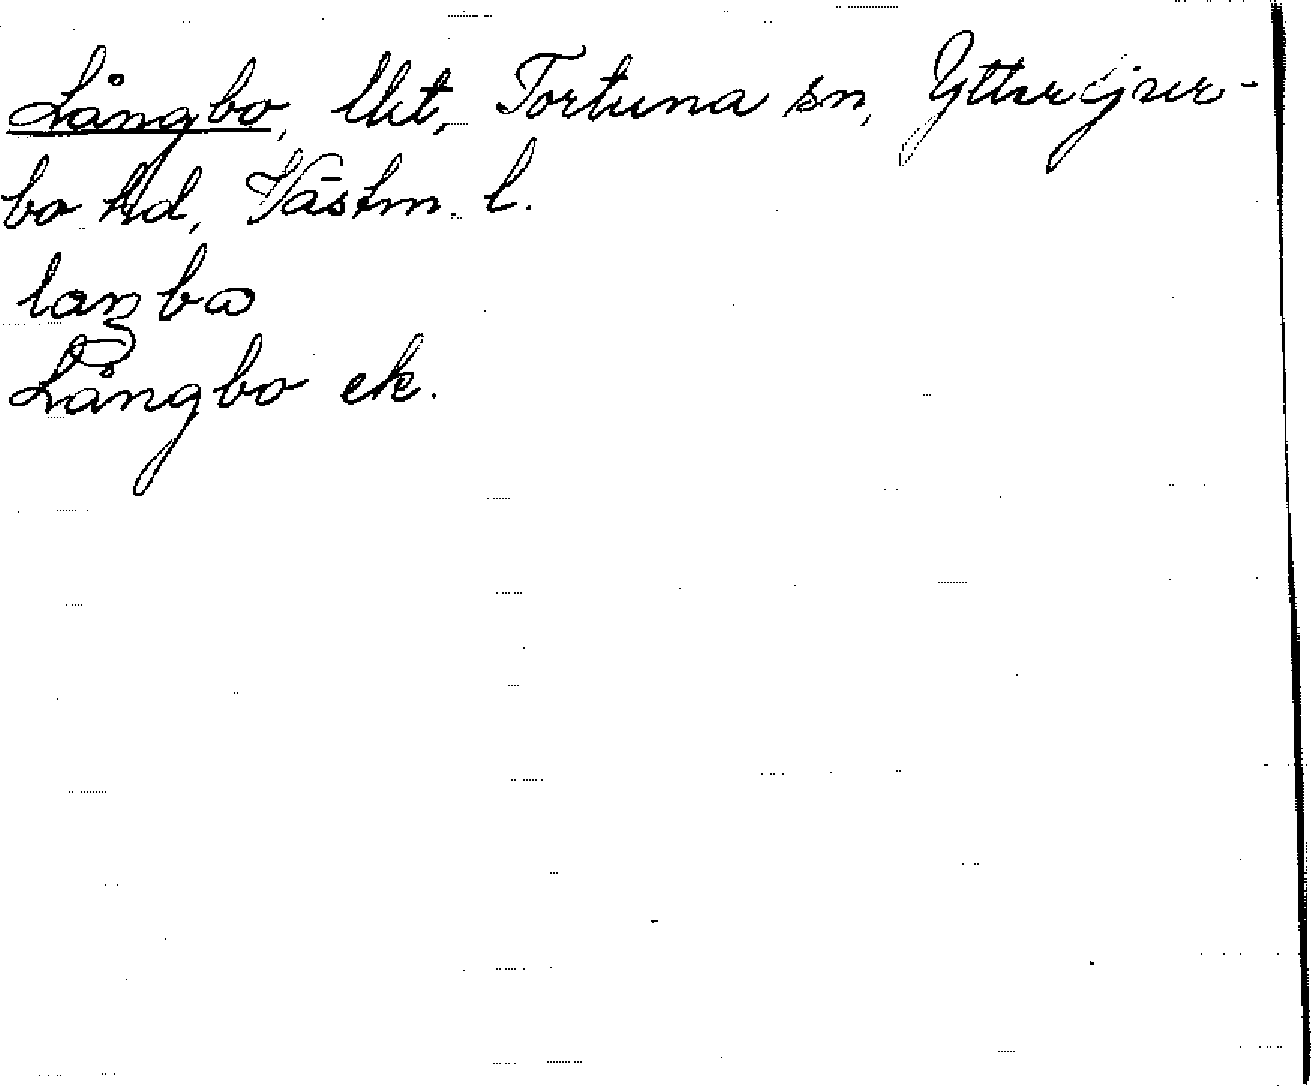 Långbo, lht, Tortuna sn, Yttertjur-
bo hd, Västm. l.
laŋbω
Långbo ek.